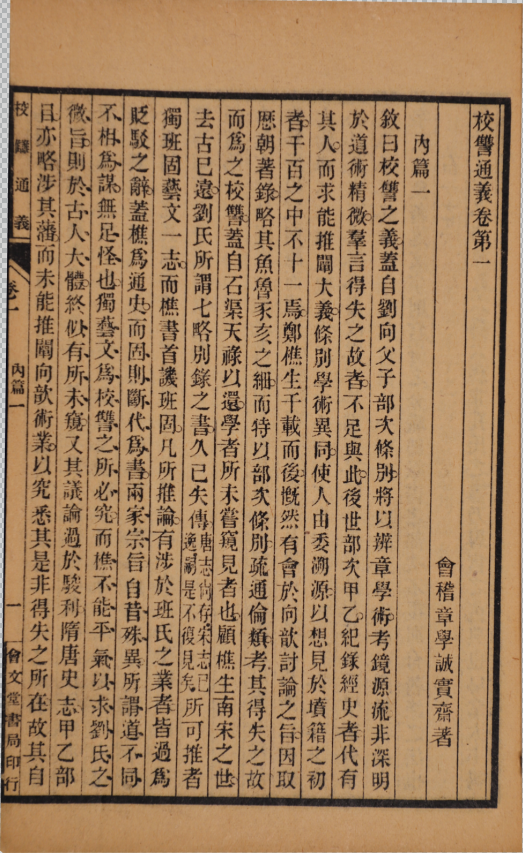 校讐通義卷第一
會稽章學誠實齋著
內篇一
敘曰校讐之義蓋自劉向父子部次條別將以辨章學術考鏡源流非深明
於道術精微羣言得失之故者不足與此後世部次甲乙紀錄經史者代有
其人而求能推闡大義條別學術異同使人由委溯源以想見於墳籍之初
者千百之中不十一焉鄭樵生千載而後慨然有會於向歆討論之旨因取
歷朝著錄略其魚魯豕亥之細而特以部次條別疏通倫類考其得失之故
而爲之校讐蓋自石渠天祿以還學者所未嘗窺見者也顧樵生南宋之世
去古已遠劉氏所謂七略別錄之書久已失傳唐志尙存宋志已逸嗣是不復見矣所可推者
獨班固藝文一志而樵書首譏班固凡所推論有涉於班氏之業者皆過爲
貶駁之辭蓋樵爲通史而固則斷代爲書兩家宗旨自昔殊異所謂道不同
不相爲謀無足怪也獨藝文爲校讐之所必究而樵不能平氣以求劉氏之
微旨則於古人大體終似有所未窺又其議論過於駿利隋唐史志甲乙部
目亦略涉其藩而未能推闡向歆術業以究悉其是非得失之所在故其自
校讐通義
卷一
內篇一
一
會文堂書局印行